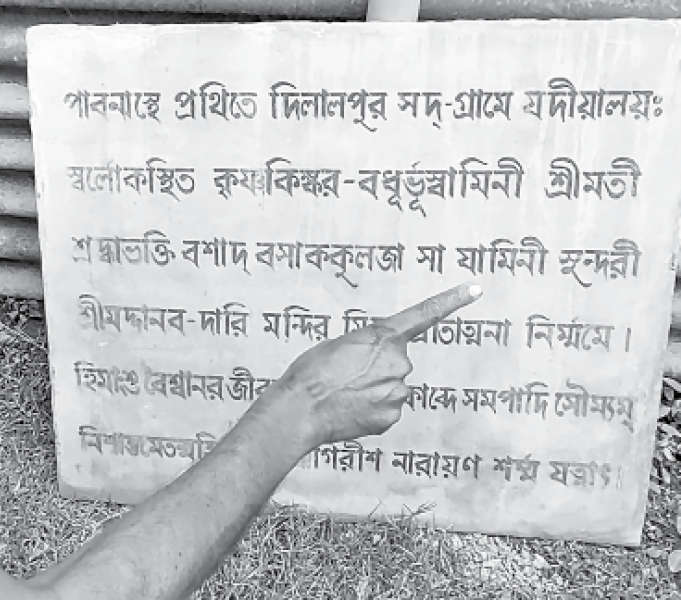 পাবনাস্থে প্রথিতে দিলালপুর সদ্-গ্রামে যদীয়ালয়ঃ
স্বর্লোকস্থিত কৃষ্ণকিঙ্কর-বধূর্ভূস্বামিনী শ্রীমতী
শ্রদ্ধাভক্তি বশাদ্ বসাককুলজা সা যামিনী সুন্দরী
শ্রীমদ্দানব-দারি মন্দির নির্ম্মমে।
হিমাংশু বৈশ্বানর কাব্দে সমপাদি সৌম্যম্
গিরীশ নারায়ণ শর্ম্ম যত্নাৎ।